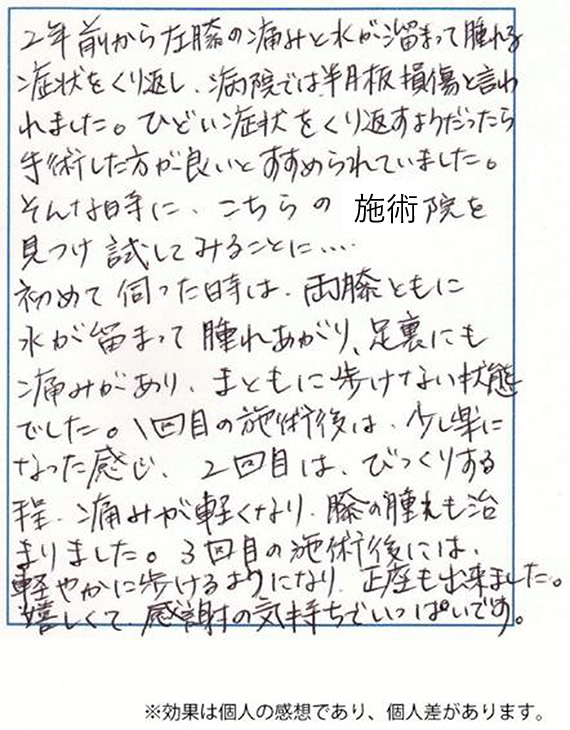 2年前から左膝の痛みと水が溜まって腫れる
症状をくり返し、病院では半月板損傷と言わ
れました。ひどい症状をくり返すようだったら
手術した方が良いとすすめられていました。
そんな時に、こちらの 施術院を
見つけ試してみることに‥‥
初めて伺った時は、両膝ともに
水が留まって腫れあがり、足裏にも
痛みがあり、まともに歩けない状態
でした。1回目の施術後は、少し楽に
なった感じ、2回目は、びっくりする
程、痛みが軽くなり、膝の腫れも治
まりました。3回目の施術後には、
軽やかに歩けるようになり、正座も出来ました。
嬉しくて、感謝の気持ちでいっぱいです。
※効果は個人の感想であり、個人差があります。